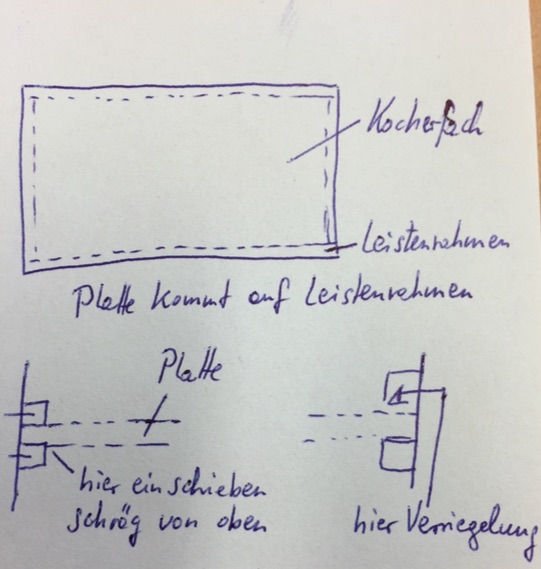 Kocherfach
Leistenrahmen
Platte kommt auf Leistenrahmen
Platte
hier einschieben
schräg von oben
hier Verriegelung